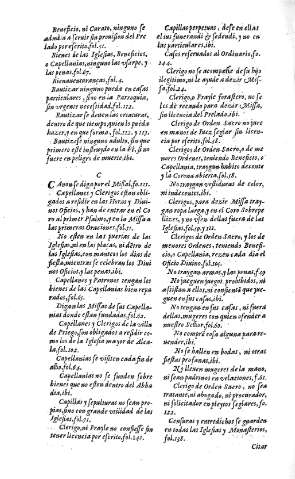 Beneficio, ni Curato, ninguno se
admita a servir sin provision del Pre
lado por escrito, fol.51.
Bienes de las Iglesias, Beneficios,
o Capellanias, ninguno las usurpe, y
las penas, fol.67.
Bienaventuranças, fol.4.
Bautizar ninguno pueda en casas
particulares, sino en la Parroquia,
sin urgente necessidad, fol.112.
Bautizarse deben las criaturas,
dentro de que
hazer, y en que forma, fol.112. y 113.
Bautizese ningun adulto, sin que
primero esté instruydo en la Fé, si no
fuere en peligro de muerte, ibi.
C
Causa se diga por el Missal, fo.111.
Capellanes y Clerigos estan obli-
gados a residir en las Horas y Divi-
nos Oficios, y han de entrar en el Co-
ro al primer Psalmo, y en la Missa a
las primeras Oraciones, fol.51.
No esten en las puertas de las
Iglesias, ni en las plaças, ni dentro de
las Iglesias, con mantos los dias de
fiesta, mientras se celebran los Divi-
nos Oficios, y las penas, ibi.
Capellanes y Patronos tengan los
bienes de las Capellanias bien repa
rados, fol.65.
Digan las Missas de sus Capella-
nias donde estan fundadas, fol.60.
Capellanes y Clerigos de la villa
de Priego, son obligados a residir co-
mo los de la Iglesia mayor de Alca-
la, fol.102.
Capellanias se visiten cada año de
alto, fol.64.
Capellanias no se funden sobre
bienes que no esten dentro del Abba
dia, ibi.
Capillas y sepulturas no sean pro-
pias, sino con grande utilidad de las
Iglesias, fol.71.
Clerigo, ni Frayle no confiesse sin
tener licencia por escrito, fol.241.
Capillas perpetuas, dese en ellas
el
las particulares, ibi.
Casos reservados al Ordinario, fo.
244.
Clerigo no se acompañe de su hijo
ilegitimo, ni le ayude a dezir Mis-
sa, fol.24.
Clerigo, o Frayle forastero, no se
les dé recado para dezir Missa,
sin licencia del Prelado, ibi.
Clerigo de Orden Sacro no jure
en manos de Juez seglar sin licen-
cia por escrito, fol.28.
Clerigo de Orden Sacro, o de me
nores Ordenes, teniendo Beneficio, o
Capellania, traygan habito decente
y la Corona abierta, fol.28.
No traygan vestiduras de color,
ni indecentes, ibi.
Clerigos, para dezir Missa tray-
gan ropa larga, y en el Coro Sobrepe
llizes, y no usen dellas sin ropa en las
Iglesias, fol.29. y 112.
Clerigos de Orden Sacro, y los de
menores Ordenes, teniendo Benefi-
cio, o Capellania, rezen cada dia el
Oficio Divino, fol.105.
No traygan armas, y las penas, f.29
No jueguen juegos prohibidos, ni
assistan a ellos, ni consienta que jue-
guen en sus casas, ibi.
No tengan en sus casas, ni fuera
dellas, mugeres con quien ofendan a
nuestro Señor, fol.60.
No compren cosa alguna para re-
vender, ibi.
No se hallen en bodas, ni otras
fiestas profanas, ibi.
Ni lleven mugeres de la mano,
ni sean padrinos en velaciones, f.61.
Clerigo de Orden Sacro, no sea
tratante, ni abogado, ni procurador,
ni solicitador en pleytos seglares, fo.
122.
Conjuras y entredichos se guarden
en todas las Iglesias y Monasterios,
fol.138.
Citar